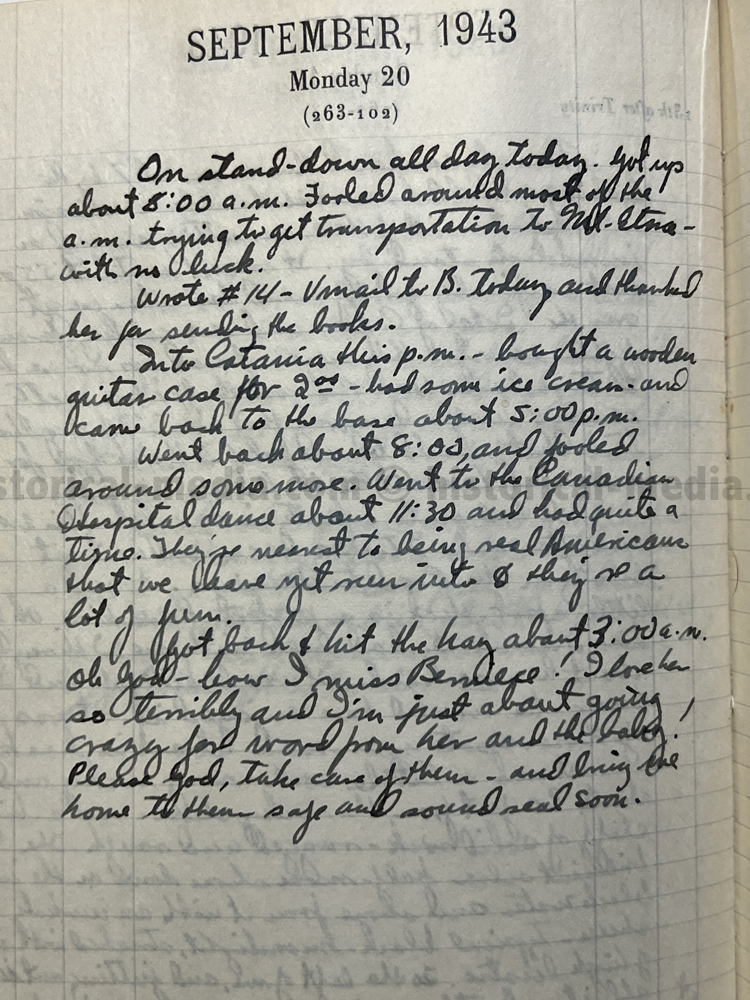 SEPTEMBER, 1943
Monday 20
(263-102)
On stand-down all day today. Got up
about 8:00 a.m. Fooled around most of the
a.m. trying to get transportation to Mt. Etna -
with no luck.
Wrote #14 - Vmail to B. today and thanked
her for sending the books.
Into Catania this p.m. - bought a wooden
guitar case for 2⁰⁰ - had some ice cream - and
came back to the base about 5:00 p.m.
Went back about 8:00, and fooled
around some more. Went to the Canadian
Hospital dance about 11:30 and had quite a
time. They're nearest to being real Americans
that we have yet run into & they're a
lot of fun.
Got back & hit the hay about 3:00 a.m.
Oh God - how I miss Berniece! I love her
so terribly and I'm just about going
crazy for word from her and the baby!
Please God, take care of them - and bring me
home to them safe and sound real soon.